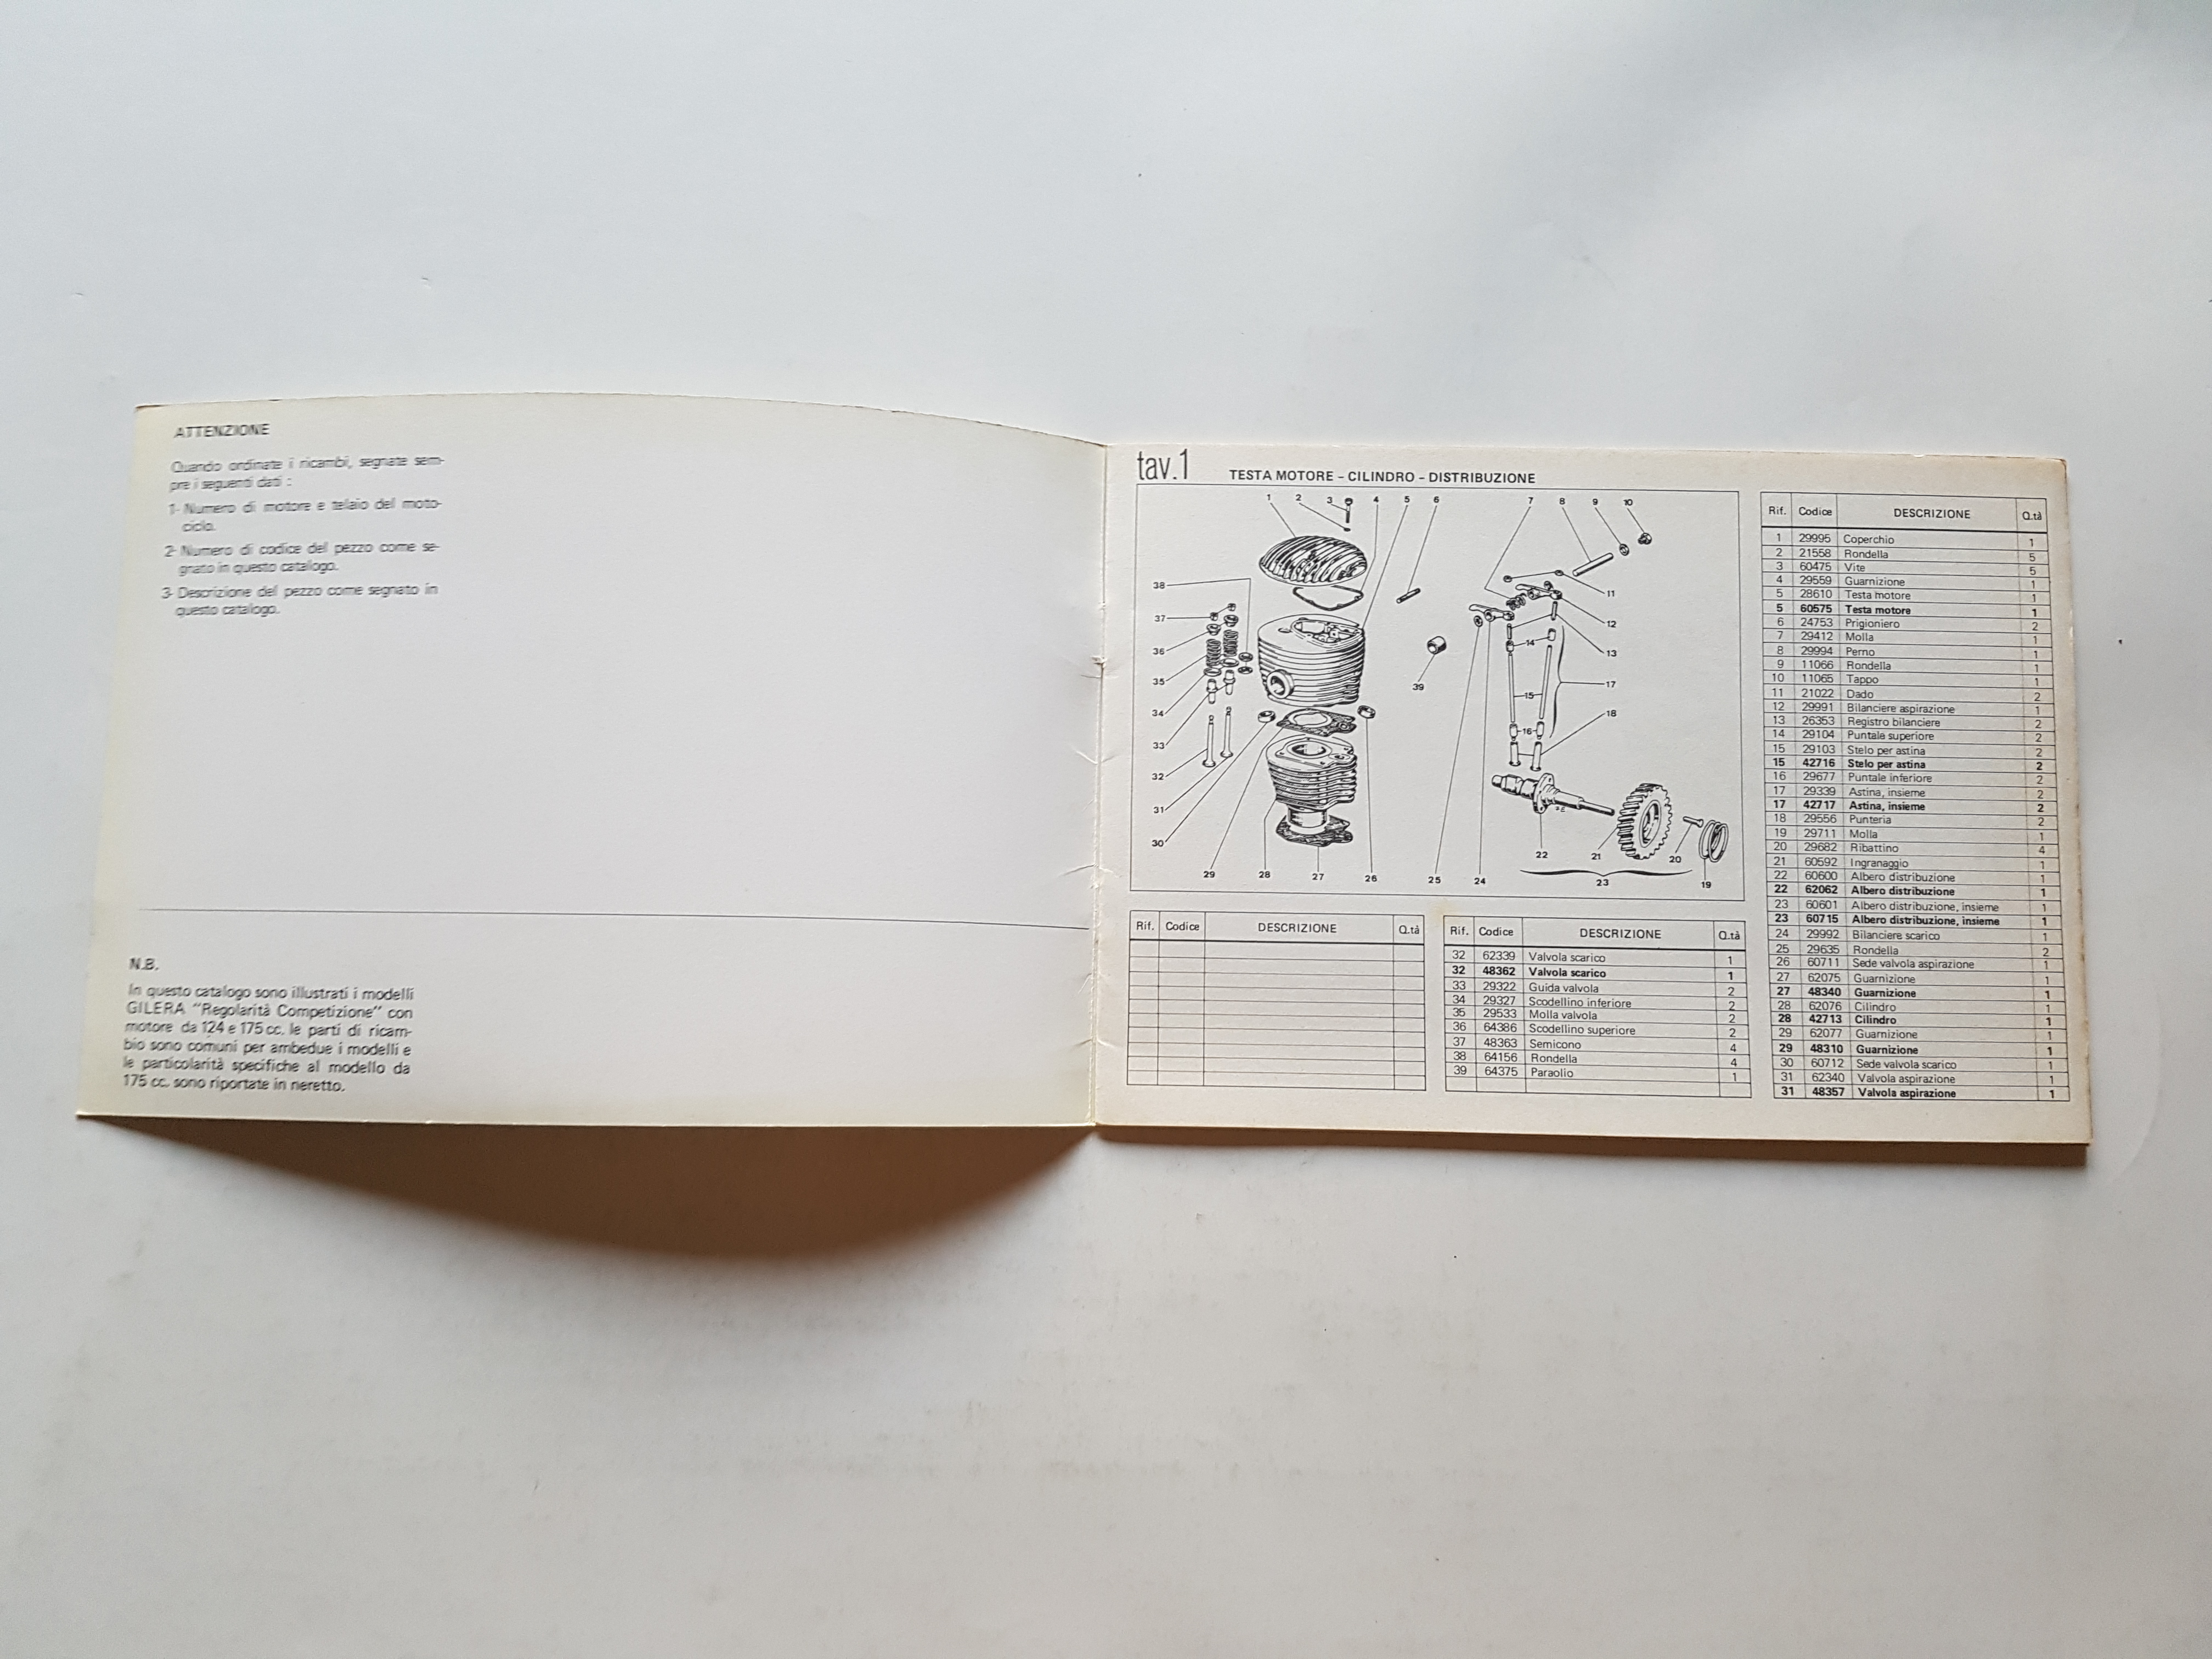 ATTENZIONE
Quando ordinate i ricambi, segnate sem-
pre i seguenti dati :
1- Numero di motore e telaio del moto-
ciclo.
2- Numero di codice del pezzo come se-
gnato in questo catalogo.
3- Descrizione del pezzo come segnato in
questo catalogo.
N.B.
In questo catalogo sono illustrati i modelli
GILERA "Regolarità Competizione" con
motore da 124 e 175 cc. le parti di ricam-
bio sono comuni per ambedue i modelli e
le particolarità specifiche al modello da
175 cc. sono riportate in neretto.
tav.1
TESTA MOTORE - CILINDRO - DISTRIBUZIONE
1 2 3 4 5 6 7 8 9 10
38
11
37
12
36
14
13
35
39
15
17
34
18
33
16
32
31
30
22 21 20
29 28 27 26 25 24 23 19
Rif. Codice DESCRIZIONE Q.tà
Rif. Codice DESCRIZIONE Q.tà
32 62339 Valvola scarico 1
32 48362 Valvola scarico 1
33 29322 Guida valvola 2
34 29327 Scodellino inferiore 2
35 29533 Molla valvola 2
36 64386 Scodellino superiore 2
37 48363 Semicono 4
38 64156 Rondella 4
39 64375 Paraolio 1
Rif. Codice DESCRIZIONE Q.tà
1 29995 Coperchio 1
2 21558 Rondella 5
3 60475 Vite 5
4 29559 Guarnizione 1
5 28610 Testa motore 1
5 60575 Testa motore 1
6 24753 Prigioniero 2
7 29412 Molla 1
8 29994 Perno 1
9 11066 Rondella 1
10 11065 Tappo 1
11 21022 Dado 2
12 29991 Bilanciere aspirazione 1
13 26353 Registro bilanciere 2
14 29104 Puntale superiore 2
15 29103 Stelo per astina 2
15 42716 Stelo per astina 2
16 29677 Puntale inferiore 2
17 29339 Astina, insieme 2
17 42717 Astina, insieme 2
18 29556 Punteria 2
19 29711 Molla 1
20 29682 Ribattino 4
21 60592 Ingranaggio 1
22 60600 Albero distribuzione 1
22 62062 Albero distribuzione 1
23 60601 Albero distribuzione, insieme 1
23 60715 Albero distribuzione, insieme 1
24 29992 Bilanciere scarico 1
25 29635 Rondella 2
26 60711 Sede valvola aspirazione 1
27 62075 Guarnizione 1
27 48340 Guarnizione 1
28 62076 Cilindro 1
28 42713 Cilindro 1
29 62077 Guarnizione 1
29 48310 Guarnizione 1
30 60712 Sede valvola scarico 1
31 62340 Valvola aspirazione 1
31 48357 Valvola aspirazione 1